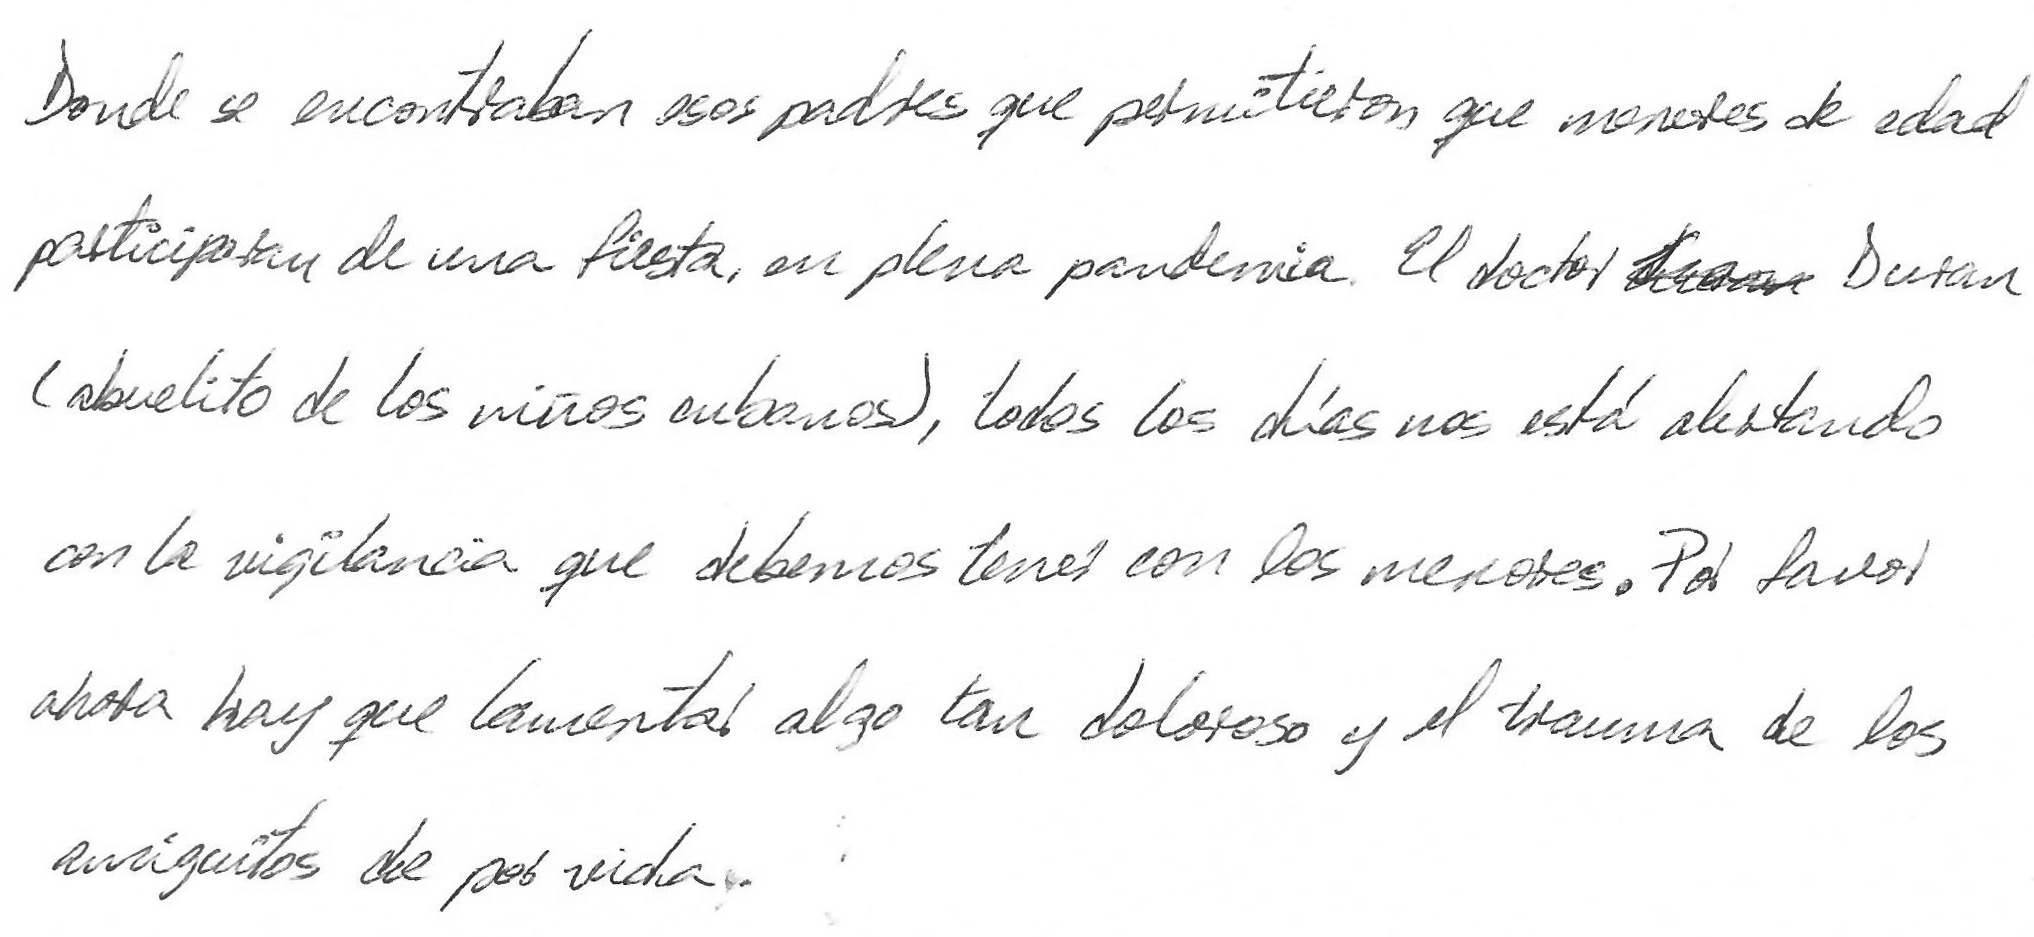 Donde se encontraban esos padres que permitieron que menores de edad
participaran de una fiesta, en plena pandemia. El doctor Duran
(abuelito de los niños cubanos), todos los días nos está alertando
con la vigilancia que debemos tener con los menores. Por favor
ahora hay que lamentar algo tan doloroso y el trauma de los
amiguitos de por vida.